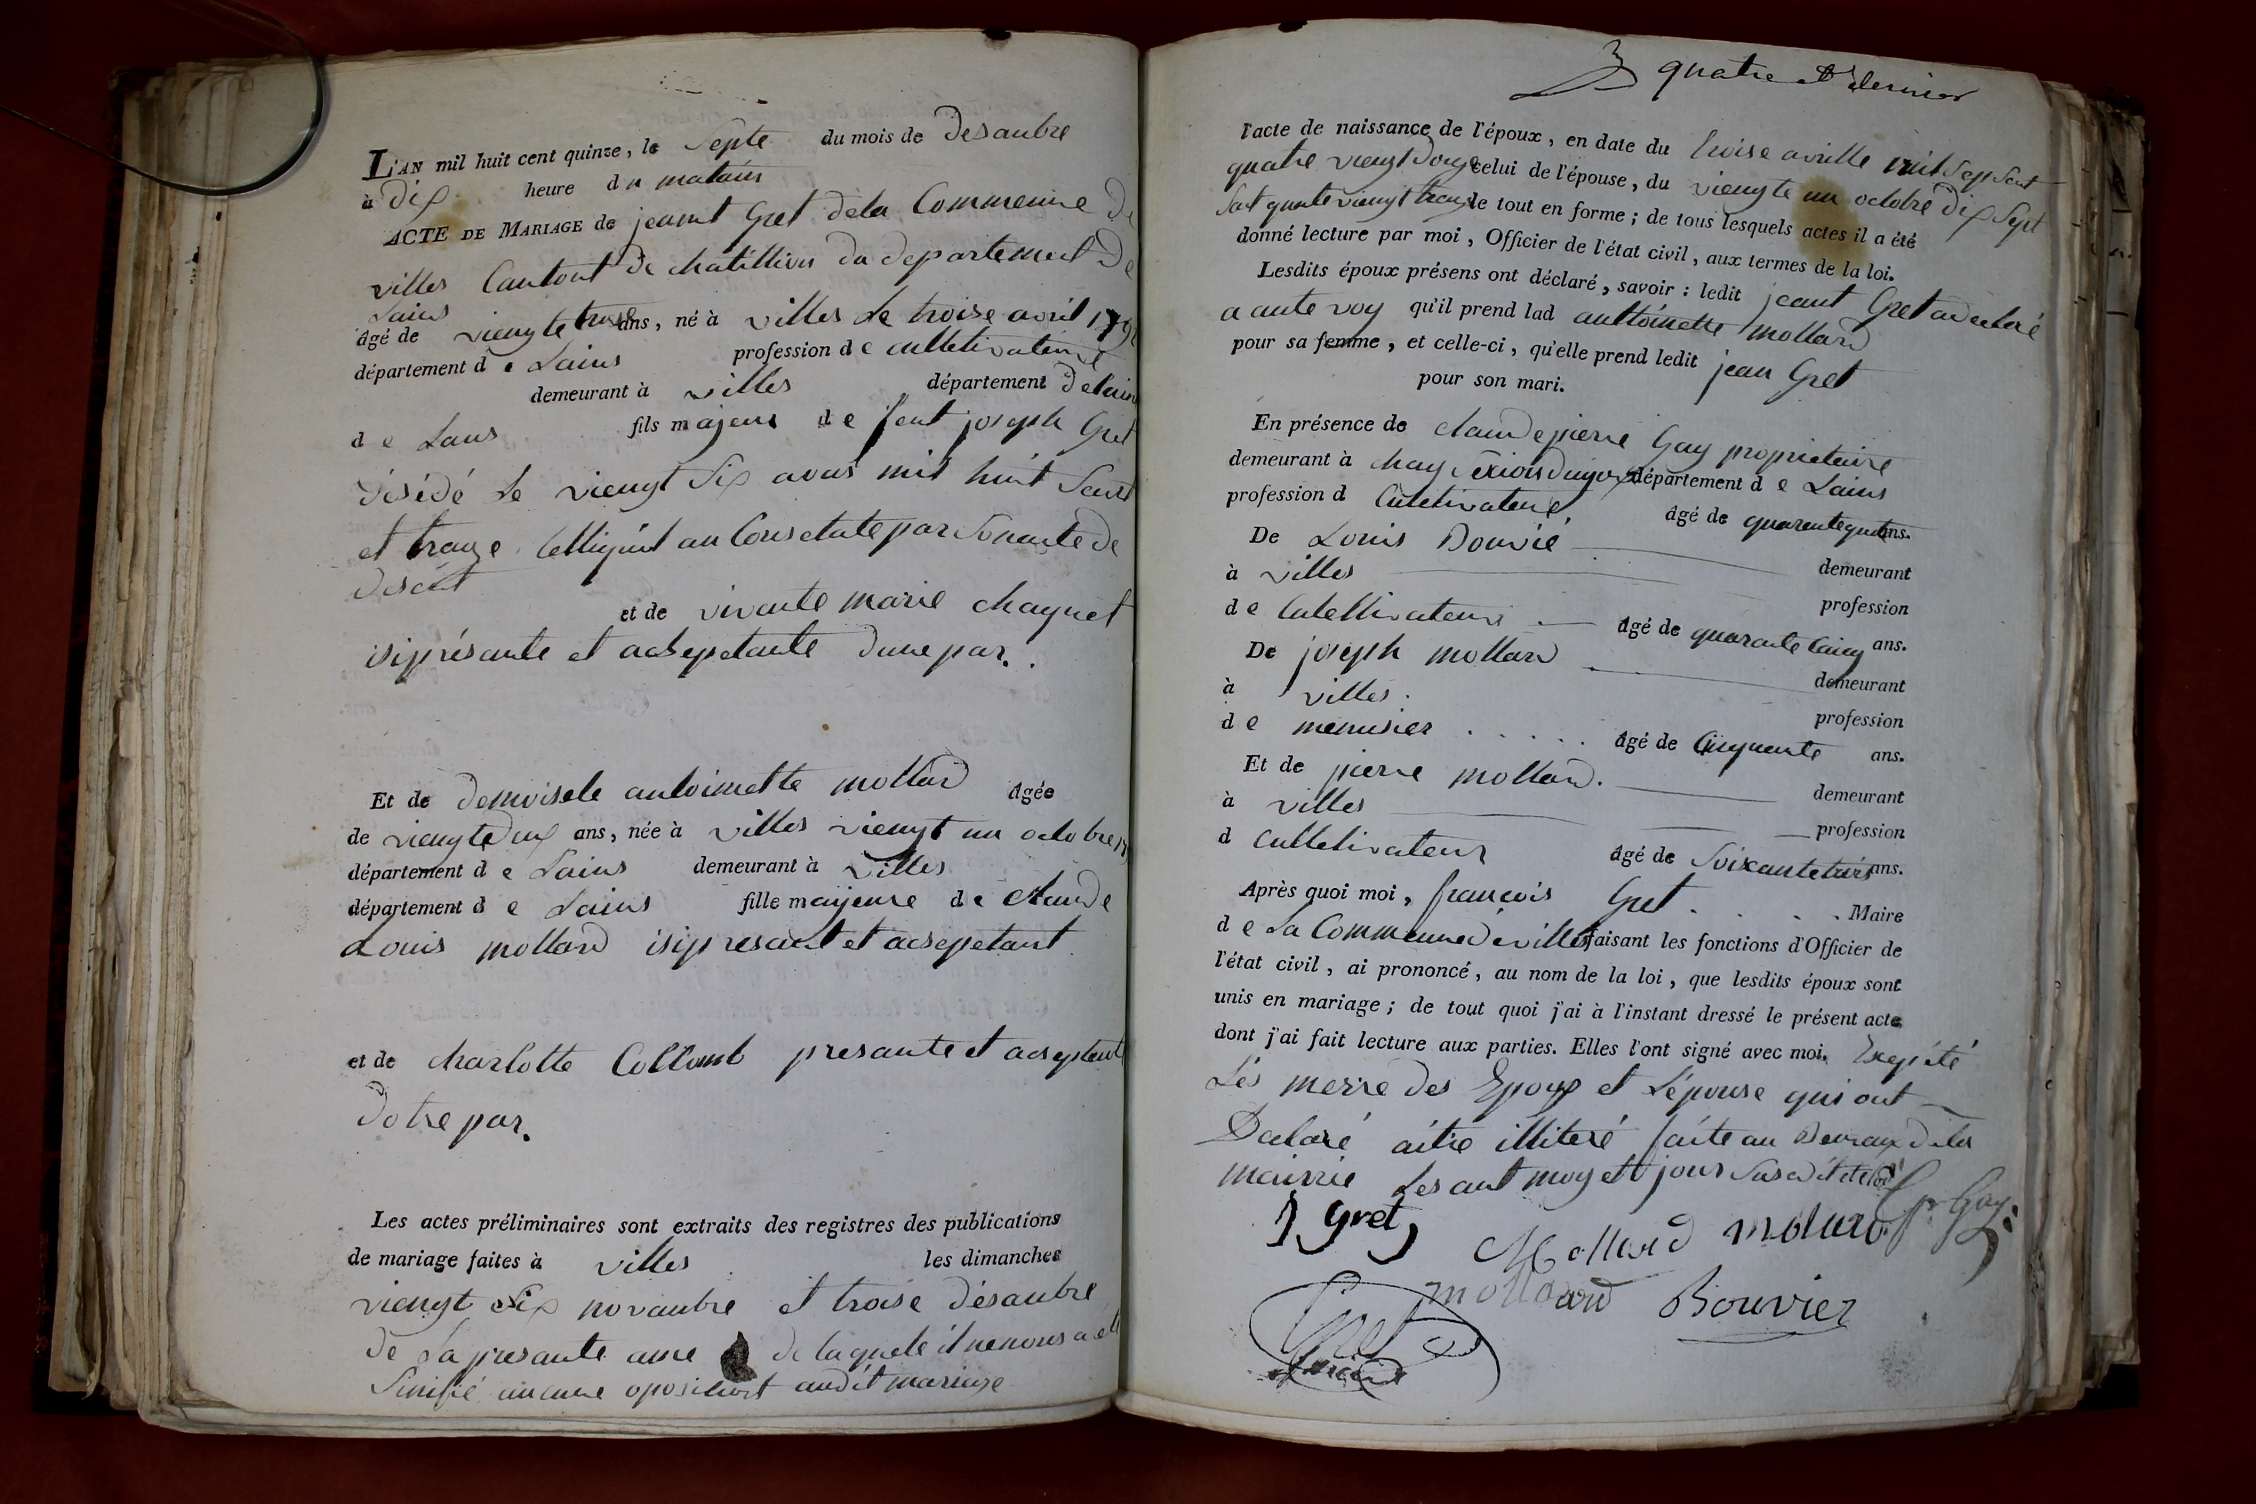 L'AN mil huit cent quinze, le septe du mois de desanbre
à dix heure du matain
ACTE DE MARIAGE de jeant Gret dela Commeune De
villes Cantont De chatillion du departement De
Lains
âgé de viengte trois ans, né à villes Le troise avril 1792
département de Lains profession de culletivateure
demeurant à villes département delain
de Lains fils majeur de feut joseph Gret
désédé Le viengt Six avous mil huit Sent
et traize Celliquil au Consetate par Sonacte De
desést
et de vivante marie chaquet
isiprésante et adseptante dune par.
Et de demoisele antoinette mollard âgée
de viengtedeux ans, née à villes viengt un octobre
département de Lains demeurant à villes
département de Lains fille majeure de Claude
Louis mollard isipresant et adsepetant
et de charlotte Collomb presante et adseptant
dotre par.
Les actes préliminaires sont extraits des registres des publications
de mariage faites à villes les dimanches
viengt Six novanbre et troise désanbre
de La presante anne de laquele il ne nous a été
Sinifié aucune oposiciont audit mariage
quatre et dernier
l'acte de naissance de l'époux, en date du troise avrille mil Sep Sent
quatre viengt douze celui de l'épouse, du viengte un octobre dix Sept
Sent quatre viengt traize le tout en forme; de tous lesquels actes il a été
donné lecture par moi, Officier de l'état civil, aux termes de la loi.
Lesdits époux présens ont déclaré, savoir: ledit jeant Gret a déclaré
a aute voy qu'il prend lad anttoinette mollard
pour sa femme, et celle-ci, qu'elle prend ledit jean Gret
pour son mari.
En présence de claude pierre Gay proprietaire
demeurant à chay département de Lains
profession d Culetivateure âgé de quarentequatre ans.
De Louis Bouvié demeurant
à villes profession
de Culletivateure âgé de quarante Cainq ans.
De joseph mollard demeurant
à villes. profession
de menusier âgé de Cinquante ans.
Et de pierre mollard. demeurant
à villes profession
d culletivateur âgé de Soixantetrois ans.
Après quoi moi, francois Gret Maire
de La Commeune de villes faisant les fonctions d'Officier de
l'état civil, ai prononcé, au nom de la loi, que lesdits époux sont
unis en mariage; de tout quoi j'ai à l'instant dressé le présent acte
dont j'ai fait lecture aux parties. Elles l'ont signé avec moi, Exepété
Lés merre des Epoux et L'épouse qui ont
Déclaré aitre illiteré faite au Beuraux dela
mairrie Les ant moy et jour Susdit
J gret Mollard molard Cp Gay
mollard Bouvier
Gret